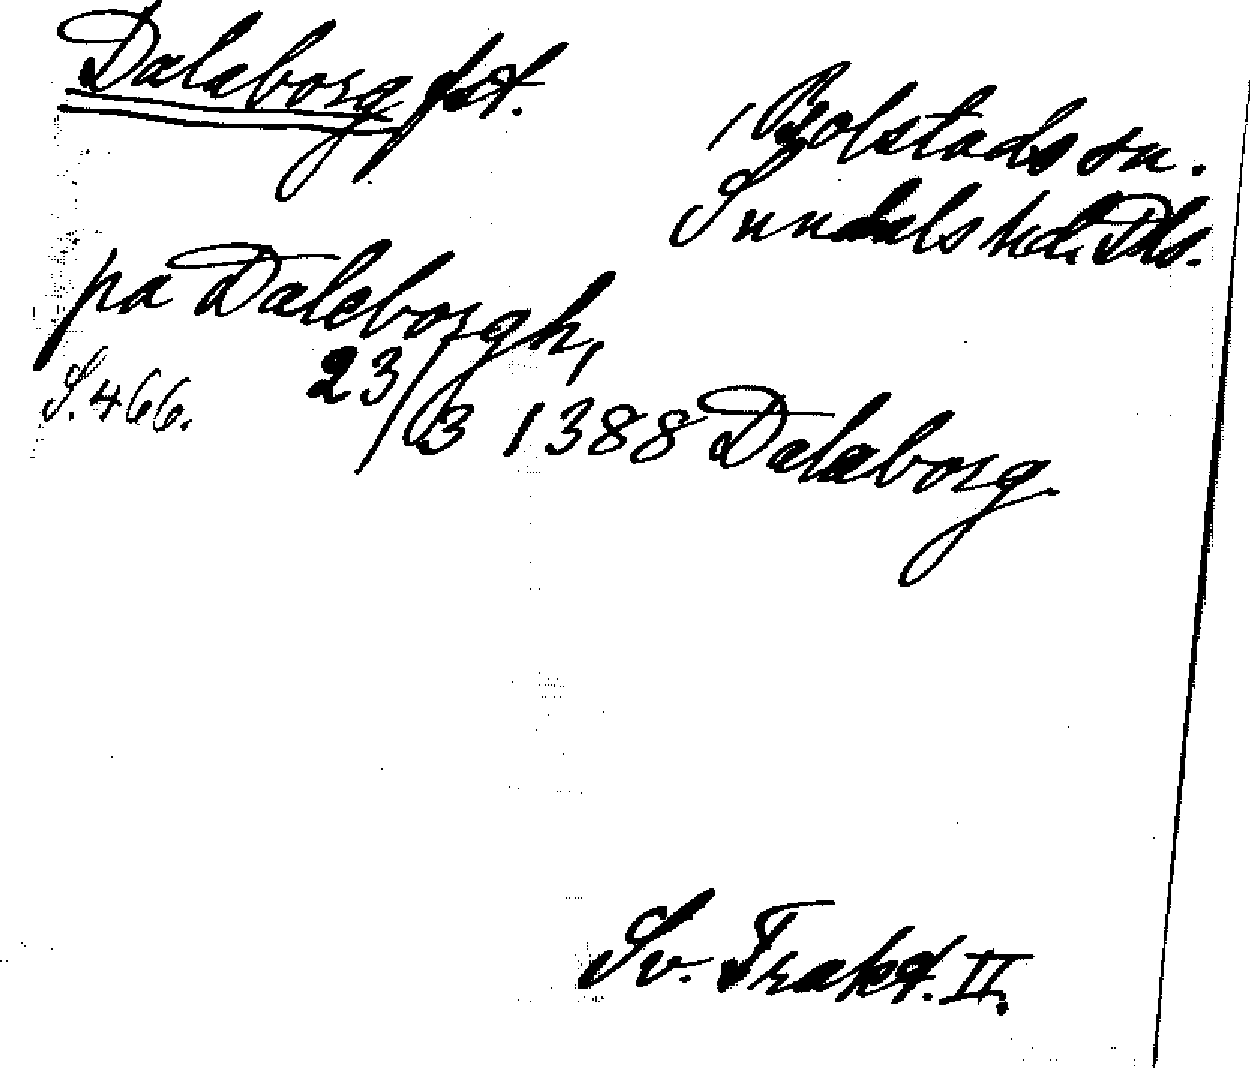 Dalaborg fst.
i Bolstads sn.
Sundals hd. Dls.
pa Daleborgh,
S. 466. 23/3 1388 Dalaborg.
Sv. Trakt. II.